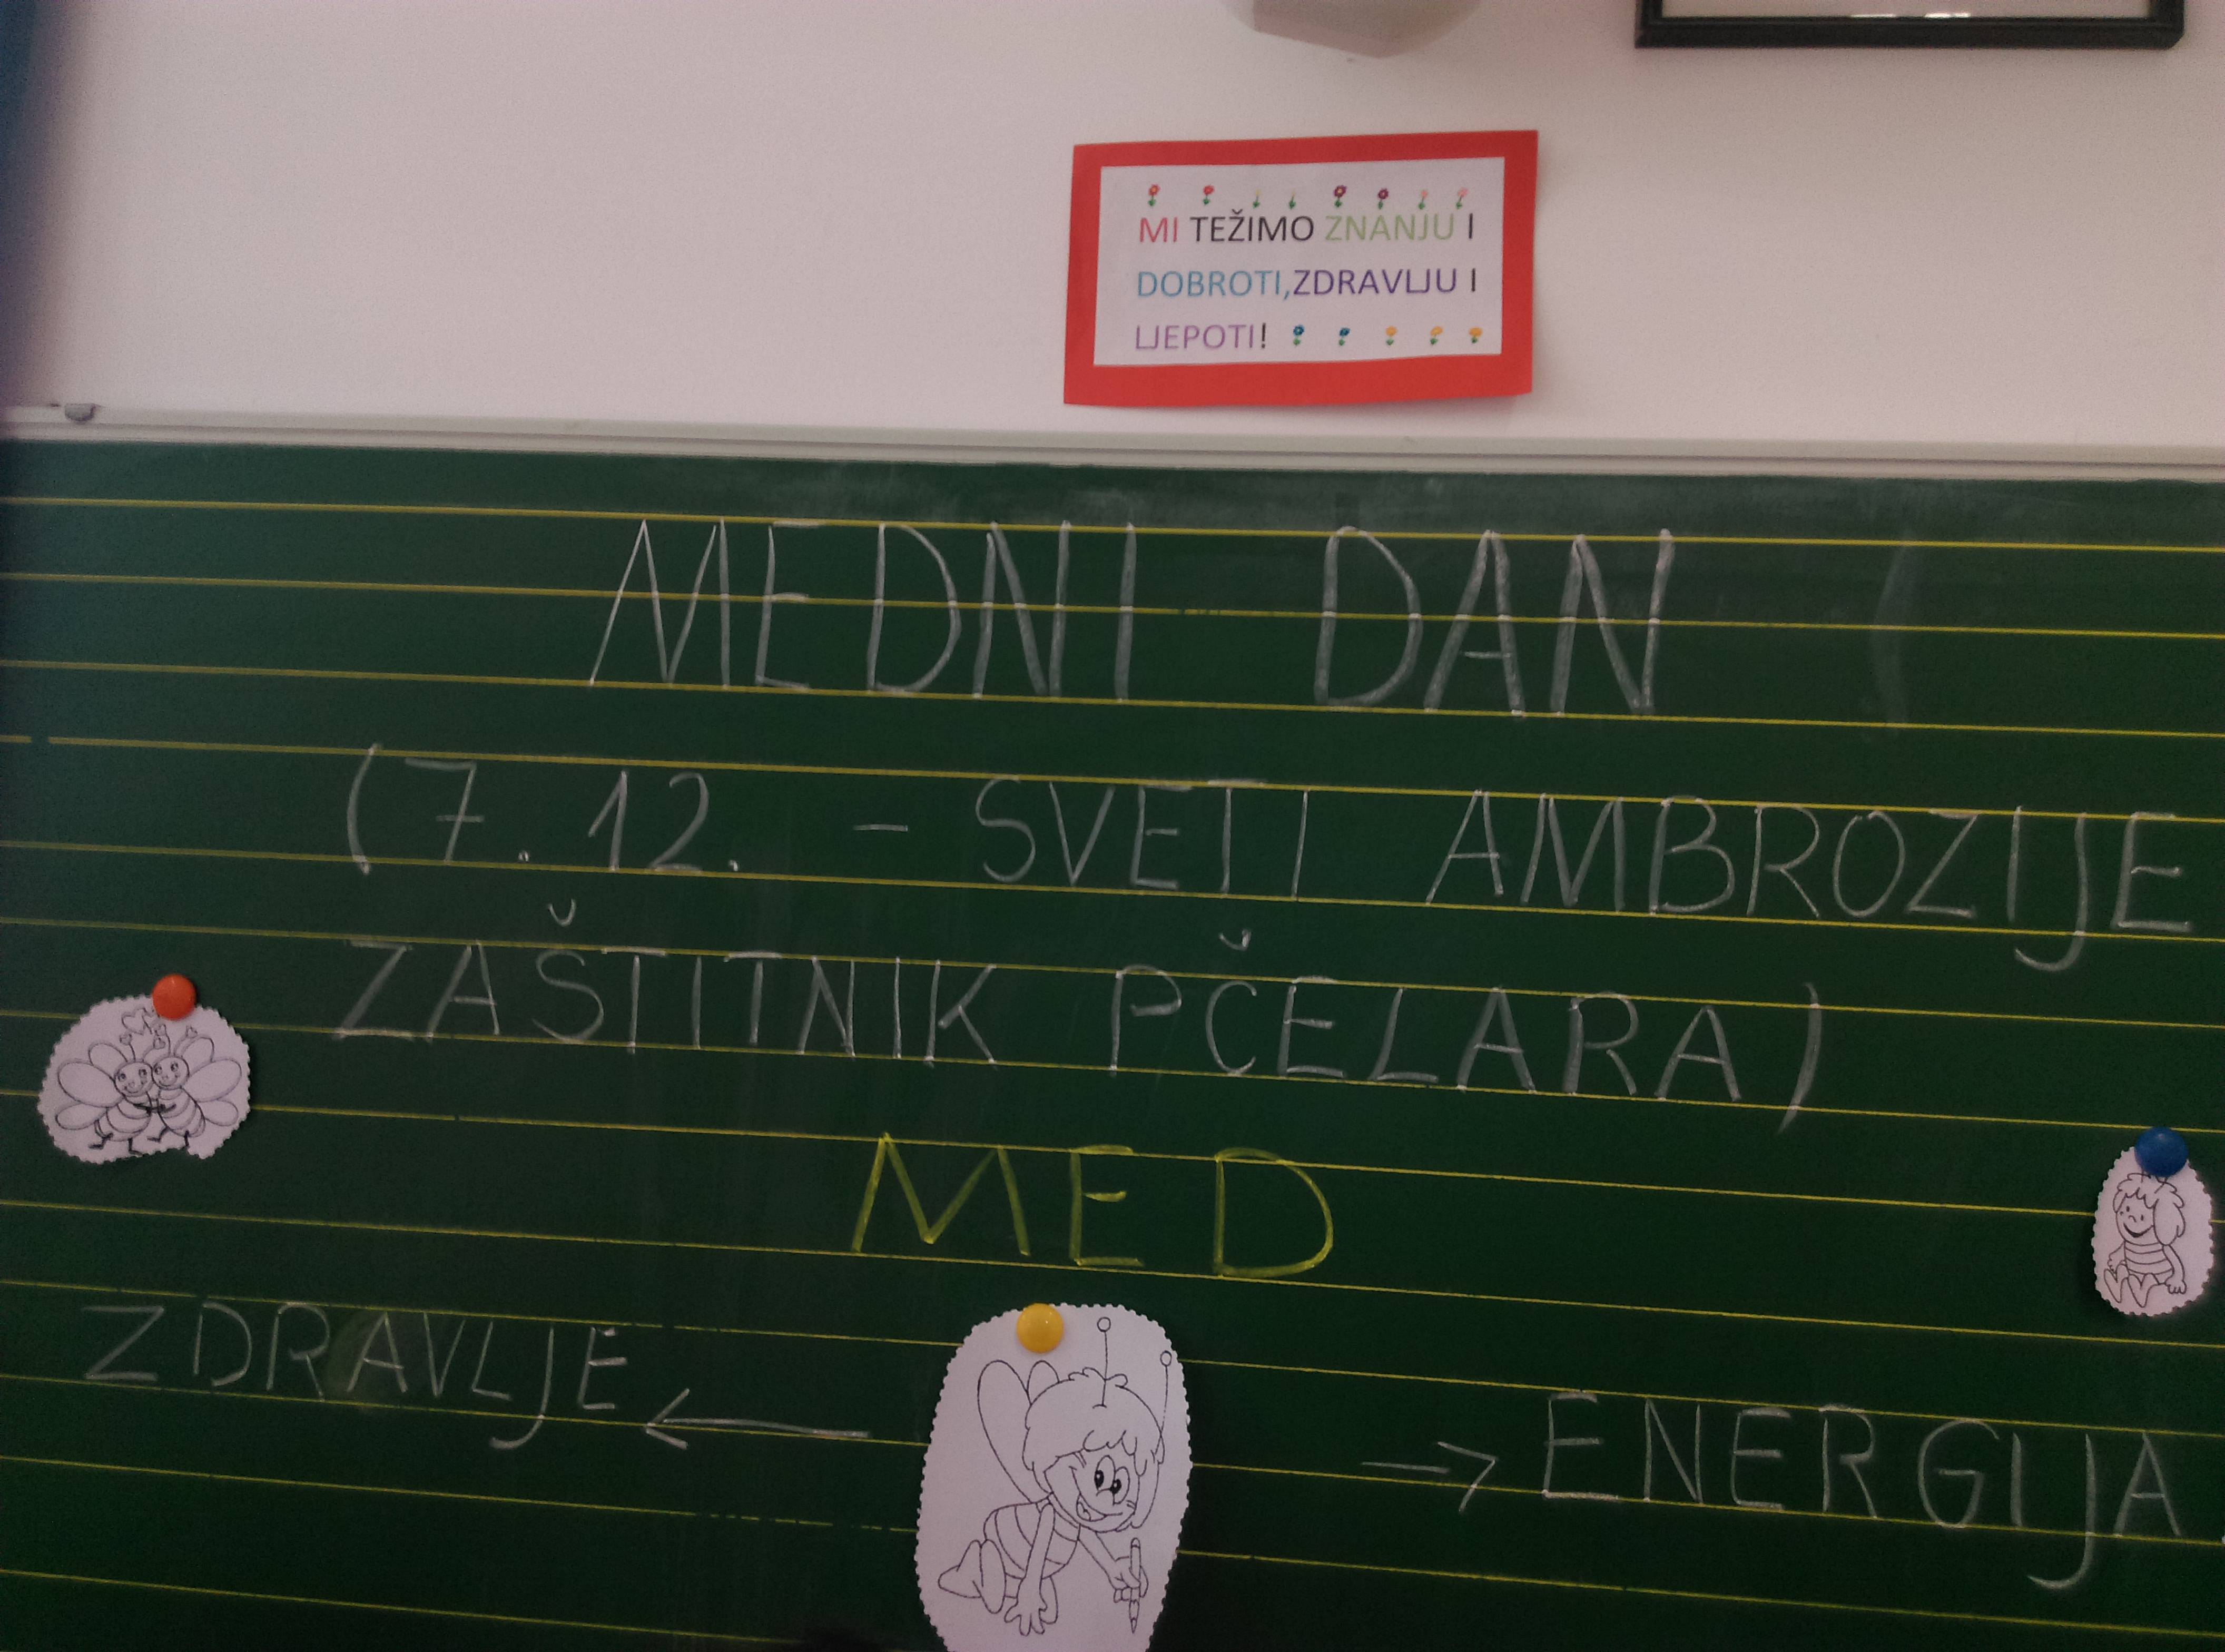 MI TEŽIMO ZNANJU I
DOBROTI,ZDRAVLJU I
LJEPOTI!
MEDNI DAN
(7.12. - SVETI AMBROZIJE
ZAŠTITNIK PČELARA)
MED
ZDRAVLJE ←
→ ENERGIJA